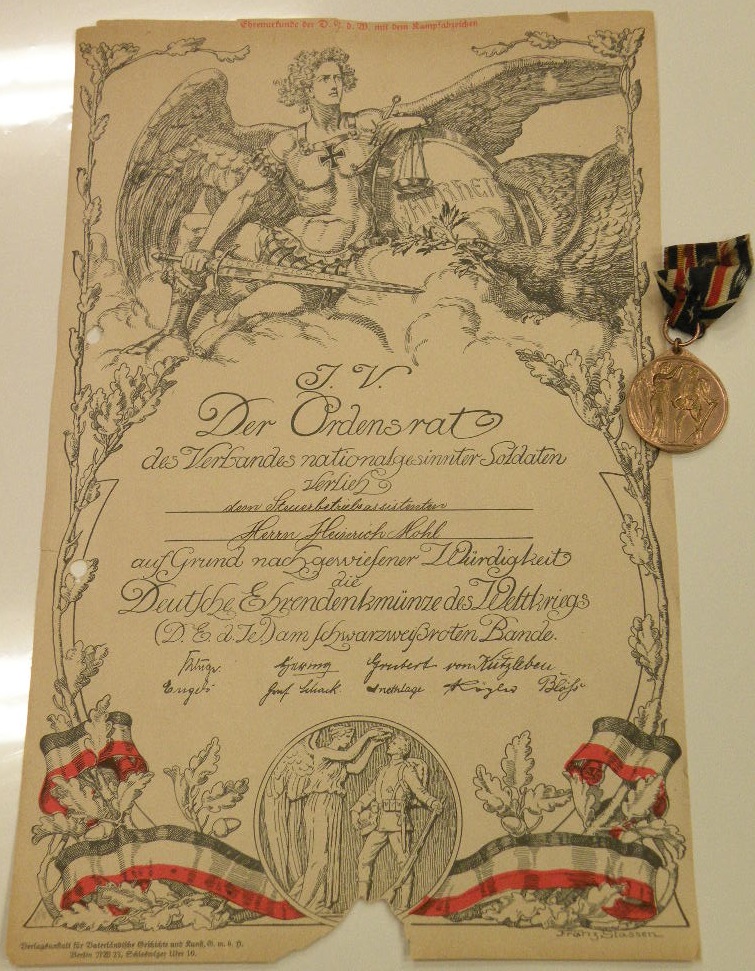 Ehrenurkunde der D. E. d. W. mit dem Kampfabzeichen
J. V.
Der Ordensrat
des Verbandes nationalgesinnter Soldaten
verlieh
dem Steuerbetriebsassistenten
Herrn Heinrich Mohl
auf Grund nachgewiesener Würdigkeit
die
Deutsche Ehrendenkmünze des Weltkriegs
(D. E. d. W.) am schwarzweißroten Bande.
Grubert von Kutzleben
Engel Graf Schack
Franz Stassen
Verlagsanstalt für Vaterländische Geschichte und Kunst, G. m. b. H.
Berlin NW 21, Schleswiger Ufer 16.